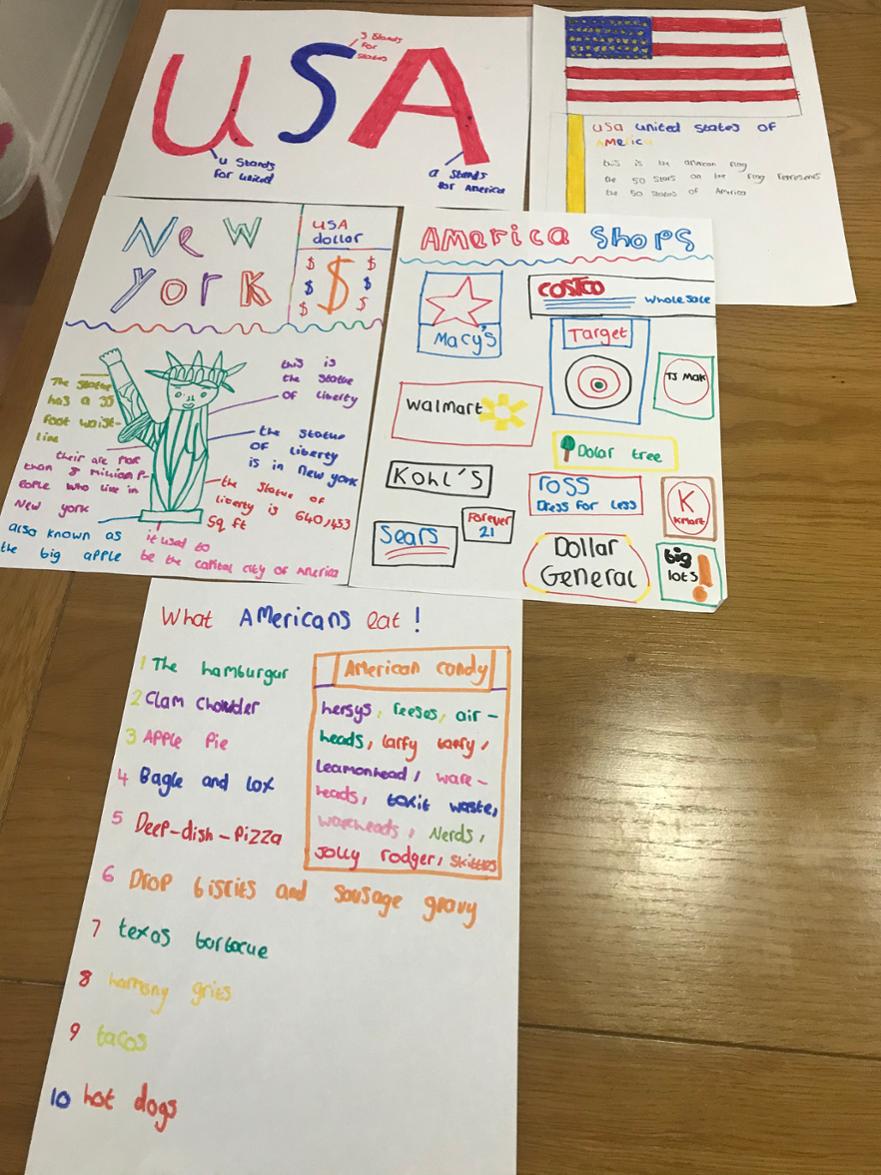 USA
S Stands
for
States
U Stands
for United
a Stands
for America
USA United States of
America
this is the american flag
the 50 Stars on the flag represents
the 50 States of America
New
York
USA
dollar
$ $ $
$ $
$ $
The Statue
has a 35
foot waist-
line
this is
the Statue
of liberty
the Statue
of liberty
is in New york
their are mor
than 8 million P-
eople who live in
New york
the Statue of
liberty is 640,453
Sq ft
also known as
the big apple
it used to
be the capital city of America
America Shops
Macy's
COSTCO
wholesale
Target
TJ Max
Walmart
Dolar tree
Kohl's
Ross
Dress for Less
K
Kmart
Sears
Forever
21
Dollar
General
big
lots!
What Americans eat!
1 The hamburgur
2 Clam Chowder
3 Apple Pie
4 Bagle and lox
5 Deep-dish-Pizza
6 Drop biscies and Sausage gravy
7 texas barbacue
8 gries
9 tacos
10 hot dogs
American candy
hersys, reeses, air-
heads, laffy taffy,
Leamonhead, ware-
heads, toxit waste,
warheads, Nerds,
Jolly rodger, Skittles